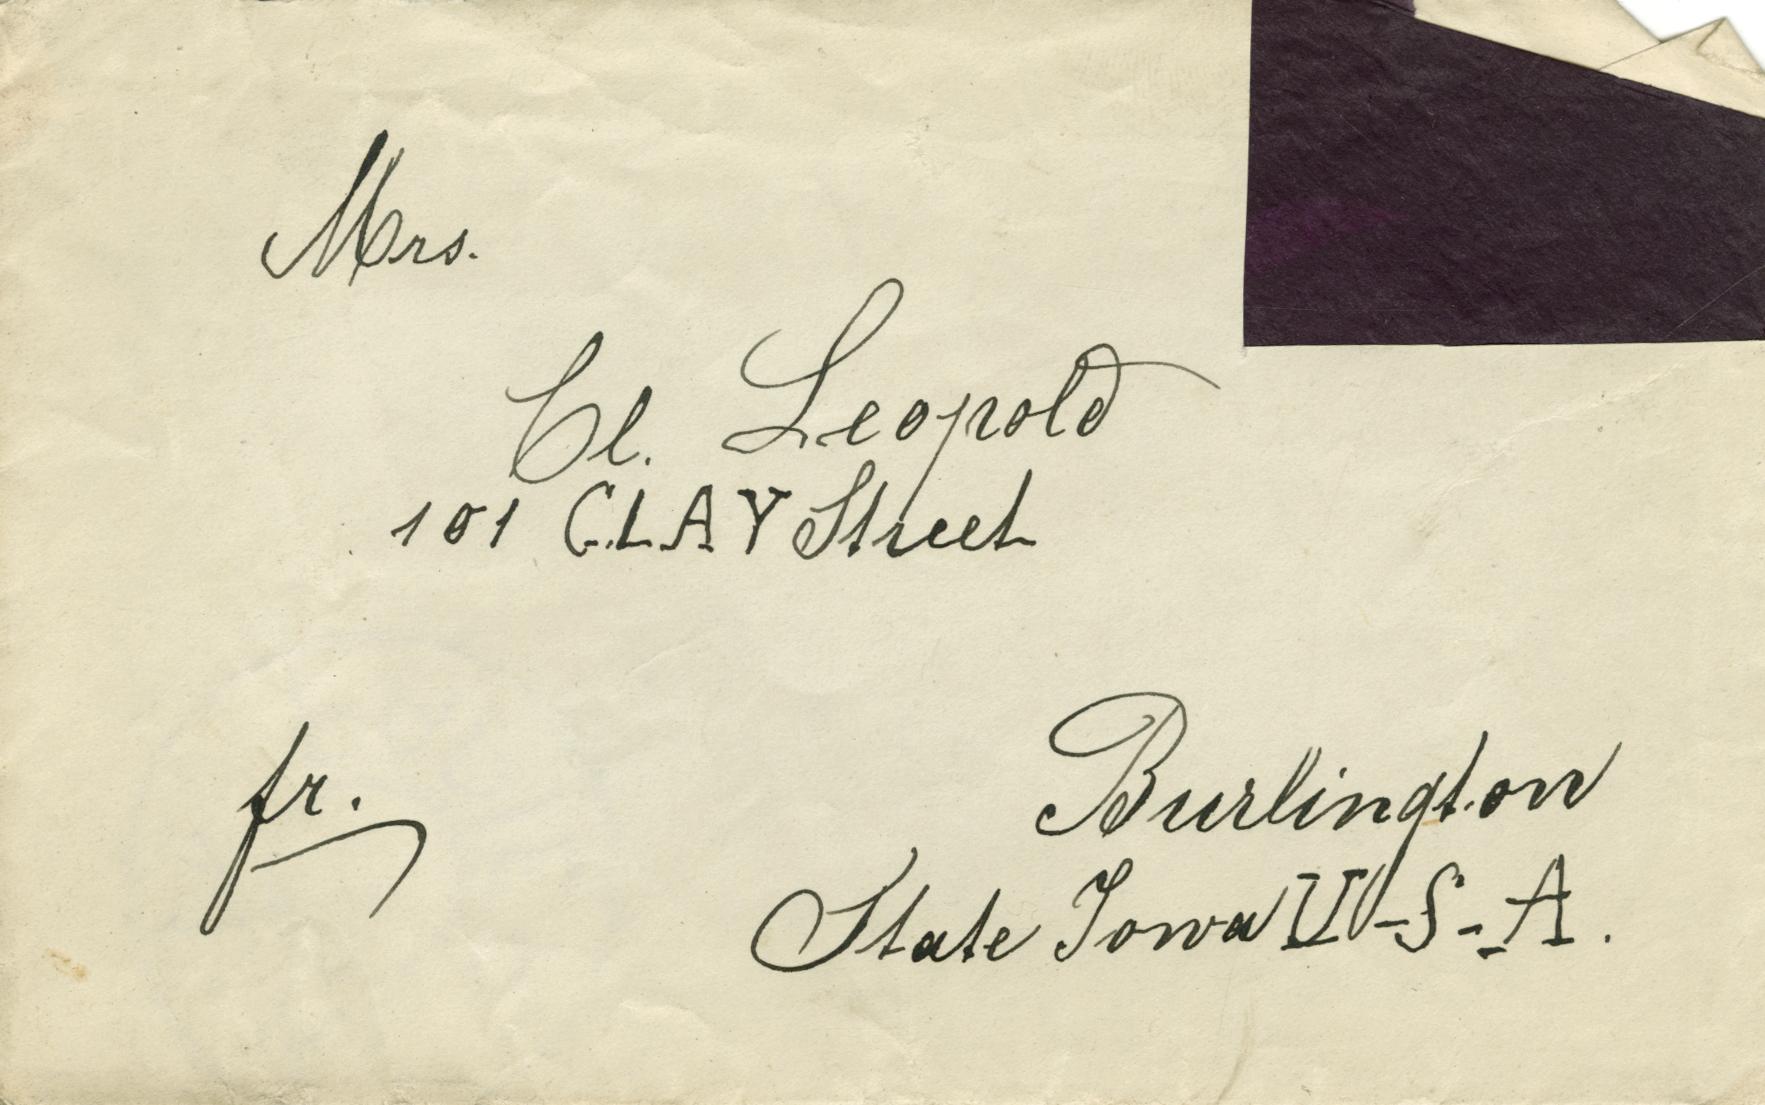 Mrs.
Cl. Leopold
101 CLAY Street
fr.
Burlington
State Iowa U-S-A.